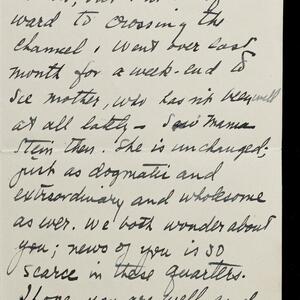 ward to crossing the
channel. I went over last
month for a week-end to
see mother, who hasn't been well
at all lately – Saw Mama
Stein then. She is unchanged;
just as dogmatic and
extraordinary and wholesome
as ever. We both wonder about
you; news of you is so
scarce in these quarters.
I hope you are well and